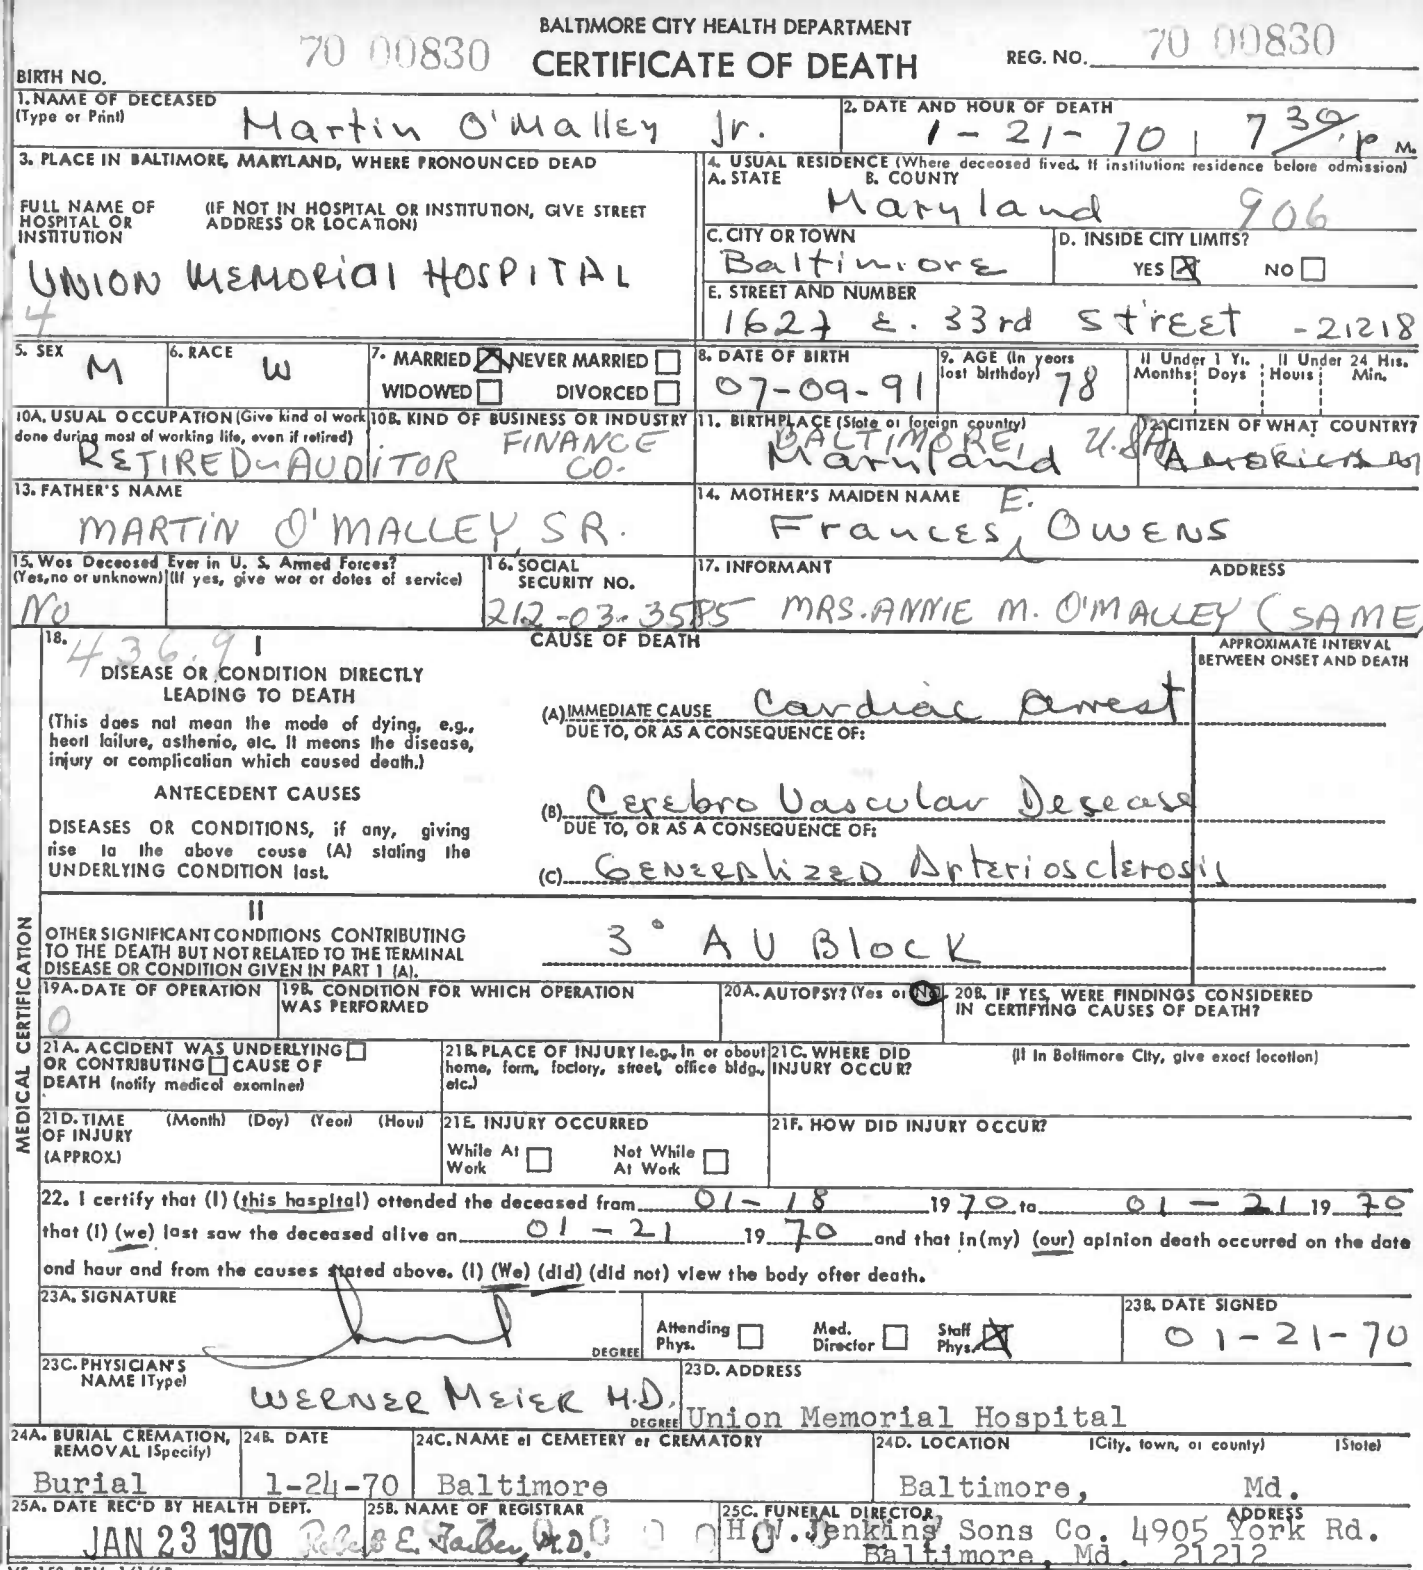 BALTIMORE CITY HEALTH DEPARTMENT
70 00830 CERTIFICATE OF DEATH REG. NO. 70 00830
BIRTH NO.
1. NAME OF DECEASED (Type or Print) Martin O'Malley Jr.
2. DATE AND HOUR OF DEATH 1-21-70 7 30 P M.
3. PLACE IN BALTIMORE, MARYLAND, WHERE PRONOUNCED DEAD
FULL NAME OF HOSPITAL OR INSTITUTION (IF NOT IN HOSPITAL OR INSTITUTION, GIVE STREET ADDRESS OR LOCATION)
UNION MEMORIAL HOSPITAL
4
4. USUAL RESIDENCE (Where deceased lived. If institution: residence before admission)
A. STATE B. COUNTY
Maryland 906
C. CITY OR TOWN Baltimore
D. INSIDE CITY LIMITS? YES X NO
E. STREET AND NUMBER
1627 E. 33rd STREET -21218
5. SEX M
6. RACE W
7. MARRIED X NEVER MARRIED
WIDOWED DIVORCED
8. DATE OF BIRTH 07-09-91
9. AGE (In years last birthday) 78
If Under 1 Yr. Months Days
If Under 24 Hrs. Hours Min.
10A. USUAL OCCUPATION (Give kind of work done during most of working life, even if retired)
RETIRED - AUDITOR
10B. KIND OF BUSINESS OR INDUSTRY
FINANCE CO.
11. BIRTHPLACE (State or foreign country)
BALTIMORE, Maryland
12. CITIZEN OF WHAT COUNTRY?
U.S.A. AMERICAN
13. FATHER'S NAME
MARTIN O'MALLEY, SR.
14. MOTHER'S MAIDEN NAME
Frances E. Owens
15. Was Deceased Ever in U. S. Armed Forces?
(Yes, no or unknown) (If yes, give war or dates of service)
No
16. SOCIAL SECURITY NO.
212-03-3585
17. INFORMANT ADDRESS
MRS. ANNIE M. O'MALLEY (SAME
18. 436.9 I CAUSE OF DEATH
APPROXIMATE INTERVAL BETWEEN ONSET AND DEATH
DISEASE OR CONDITION DIRECTLY LEADING TO DEATH
(This does not mean the mode of dying, e.g., heart failure, asthenia, etc. It means the disease, injury or complication which caused death.)
(A) IMMEDIATE CAUSE Cardiac Arrest
DUE TO, OR AS A CONSEQUENCE OF:
ANTECEDENT CAUSES
DISEASES OR CONDITIONS, if any, giving rise to the above cause (A) stating the UNDERLYING CONDITION last.
(B) Cerebro Vascular Desease
DUE TO, OR AS A CONSEQUENCE OF:
(C) GENERALIZED Arteriosclerosis
II
OTHER SIGNIFICANT CONDITIONS CONTRIBUTING TO THE DEATH BUT NOT RELATED TO THE TERMINAL DISEASE OR CONDITION GIVEN IN PART 1 (A).
3° AV Block
MEDICAL CERTIFICATION
19A. DATE OF OPERATION 0
19B. CONDITION FOR WHICH OPERATION WAS PERFORMED
20A. AUTOPSY? (Yes or No)
20B. IF YES, WERE FINDINGS CONSIDERED IN CERTIFYING CAUSES OF DEATH?
21A. ACCIDENT WAS UNDERLYING OR CONTRIBUTING CAUSE OF DEATH (notify medical examiner)
21B. PLACE OF INJURY (e.g., in or about home, farm, factory, street, office bldg., etc.)
21C. WHERE DID INJURY OCCUR? (If in Baltimore City, give exact location)
21D. TIME OF INJURY (APPROX.) (Month) (Day) (Year) (Hour)
21E. INJURY OCCURRED
While At Work Not While At Work
21F. HOW DID INJURY OCCUR?
22. I certify that (I) (this hospital) attended the deceased from 01-18 1970 to 01-21 1970
that (I) (we) last saw the deceased alive on 01-21 1970 and that in (my) (our) opinion death occurred on the date
and hour and from the causes stated above. (I) (We) (did) (did not) view the body after death.
23A. SIGNATURE
DEGREE
Attending Phys. Med. Director Staff Phys. X
23B. DATE SIGNED
01-21-70
23C. PHYSICIAN'S NAME (Type)
WERNER MEIER M.D.
DEGREE
23D. ADDRESS
Union Memorial Hospital
24A. BURIAL CREMATION, REMOVAL (Specify) Burial
24B. DATE 1-24-70
24C. NAME of CEMETERY or CREMATORY Baltimore
24D. LOCATION (City, town, or county) (State)
Baltimore, Md.
25A. DATE REC'D BY HEALTH DEPT.
JAN 23 1970
25B. NAME OF REGISTRAR
Robert E. Farber, M.D.
25C. FUNERAL DIRECTOR, ADDRESS
H. W. Jenkins Sons Co. 4905 York Rd.
Baltimore, Md. 21212